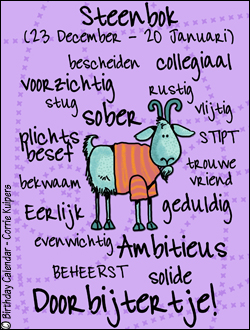 Steenbok
(23 December - 20 Januari)
bescheiden collegiaal
voorzichtig rustig
stug vlijtig
sober
plichts STIPT
beset
trouwe
bekwaam vriend
Eerlijk geduldig
evenwichtig Ambitieus
BEHEERST solide
Doorbijtertje!
© Birthday Calendar - Corrie Kuipers